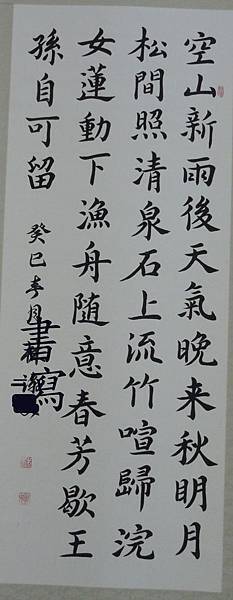 空山新雨後天氣晚来秋明月
松間照清泉石上流竹喧歸浣
女蓮動下漁舟随意春芳歇王
孫自可留
癸巳春月
書寫